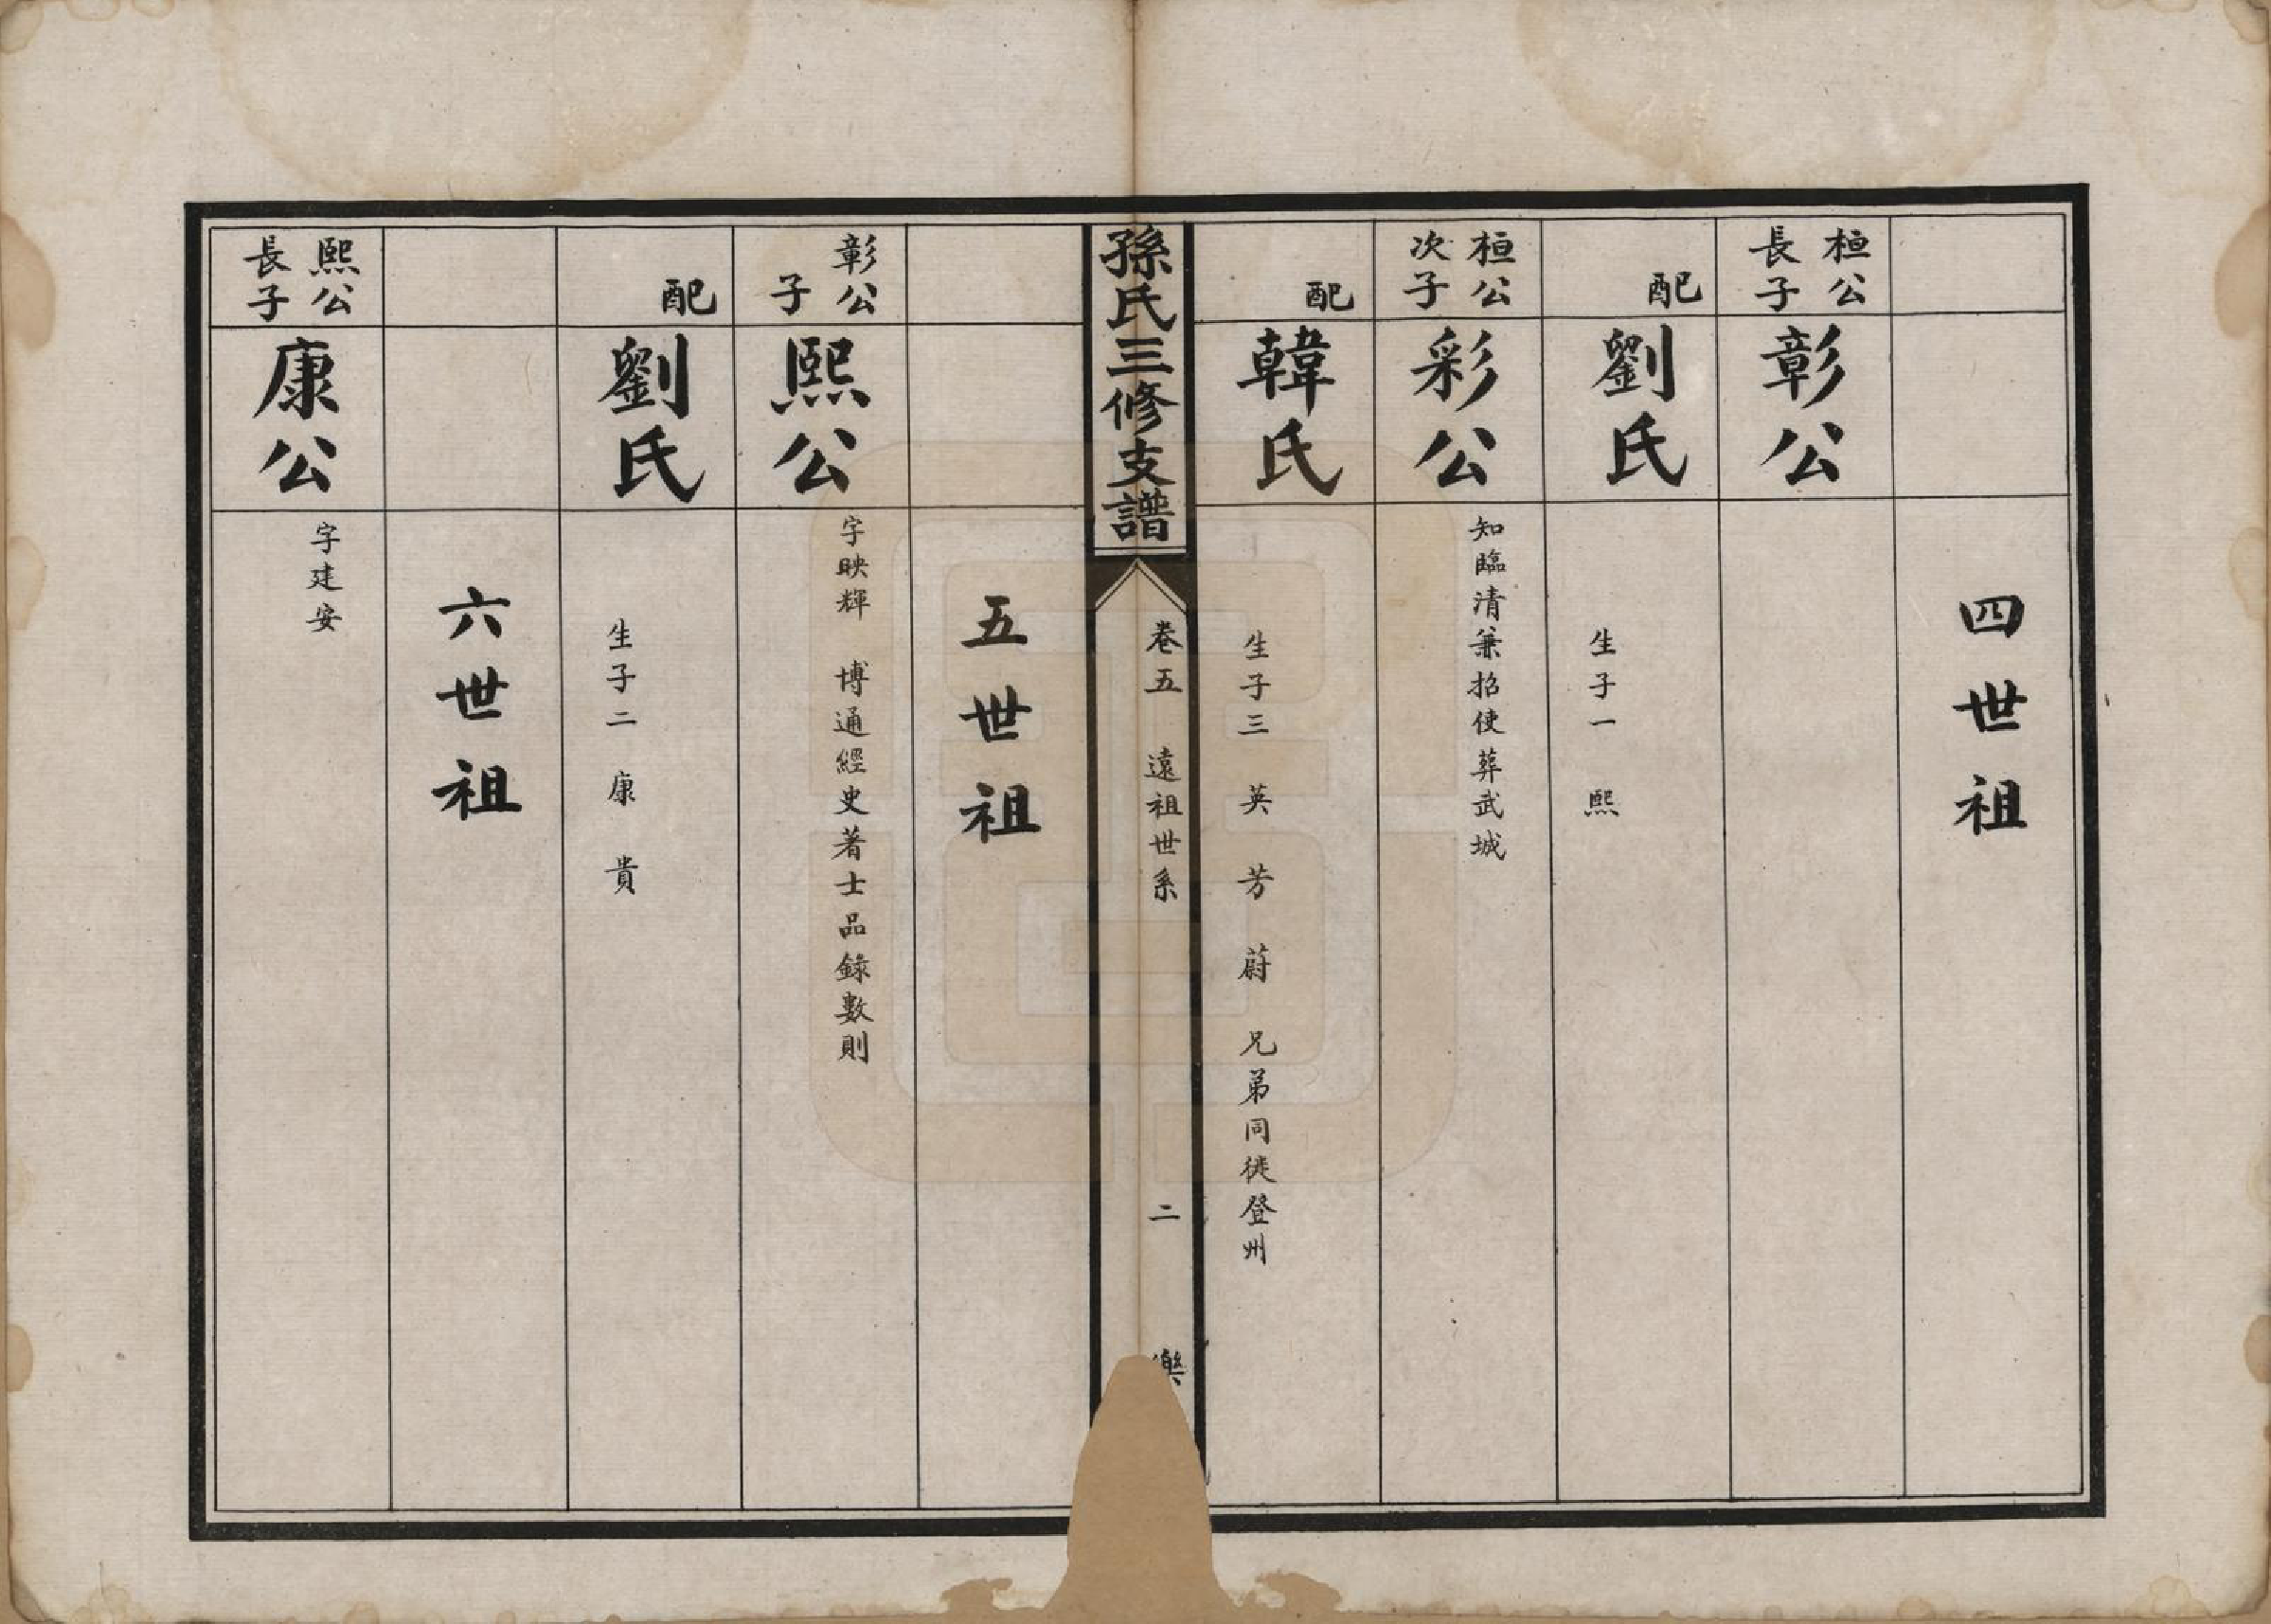 四世祖
桓公
長子
彰公
配
劉氏
生子一 熙
桓公
次子
彩公
知臨清兼招使葬武城
配
韓氏
生子三 英 芳 蔚 兄弟同徙登州
孫氏三修支譜
卷五 遠祖世系
二
樂
五世祖
彰公
子
熙公
字映輝 博通經史著士品錄數則
配
劉氏
生子二 康 貴
六世祖
熙公
長子
康公
字建安